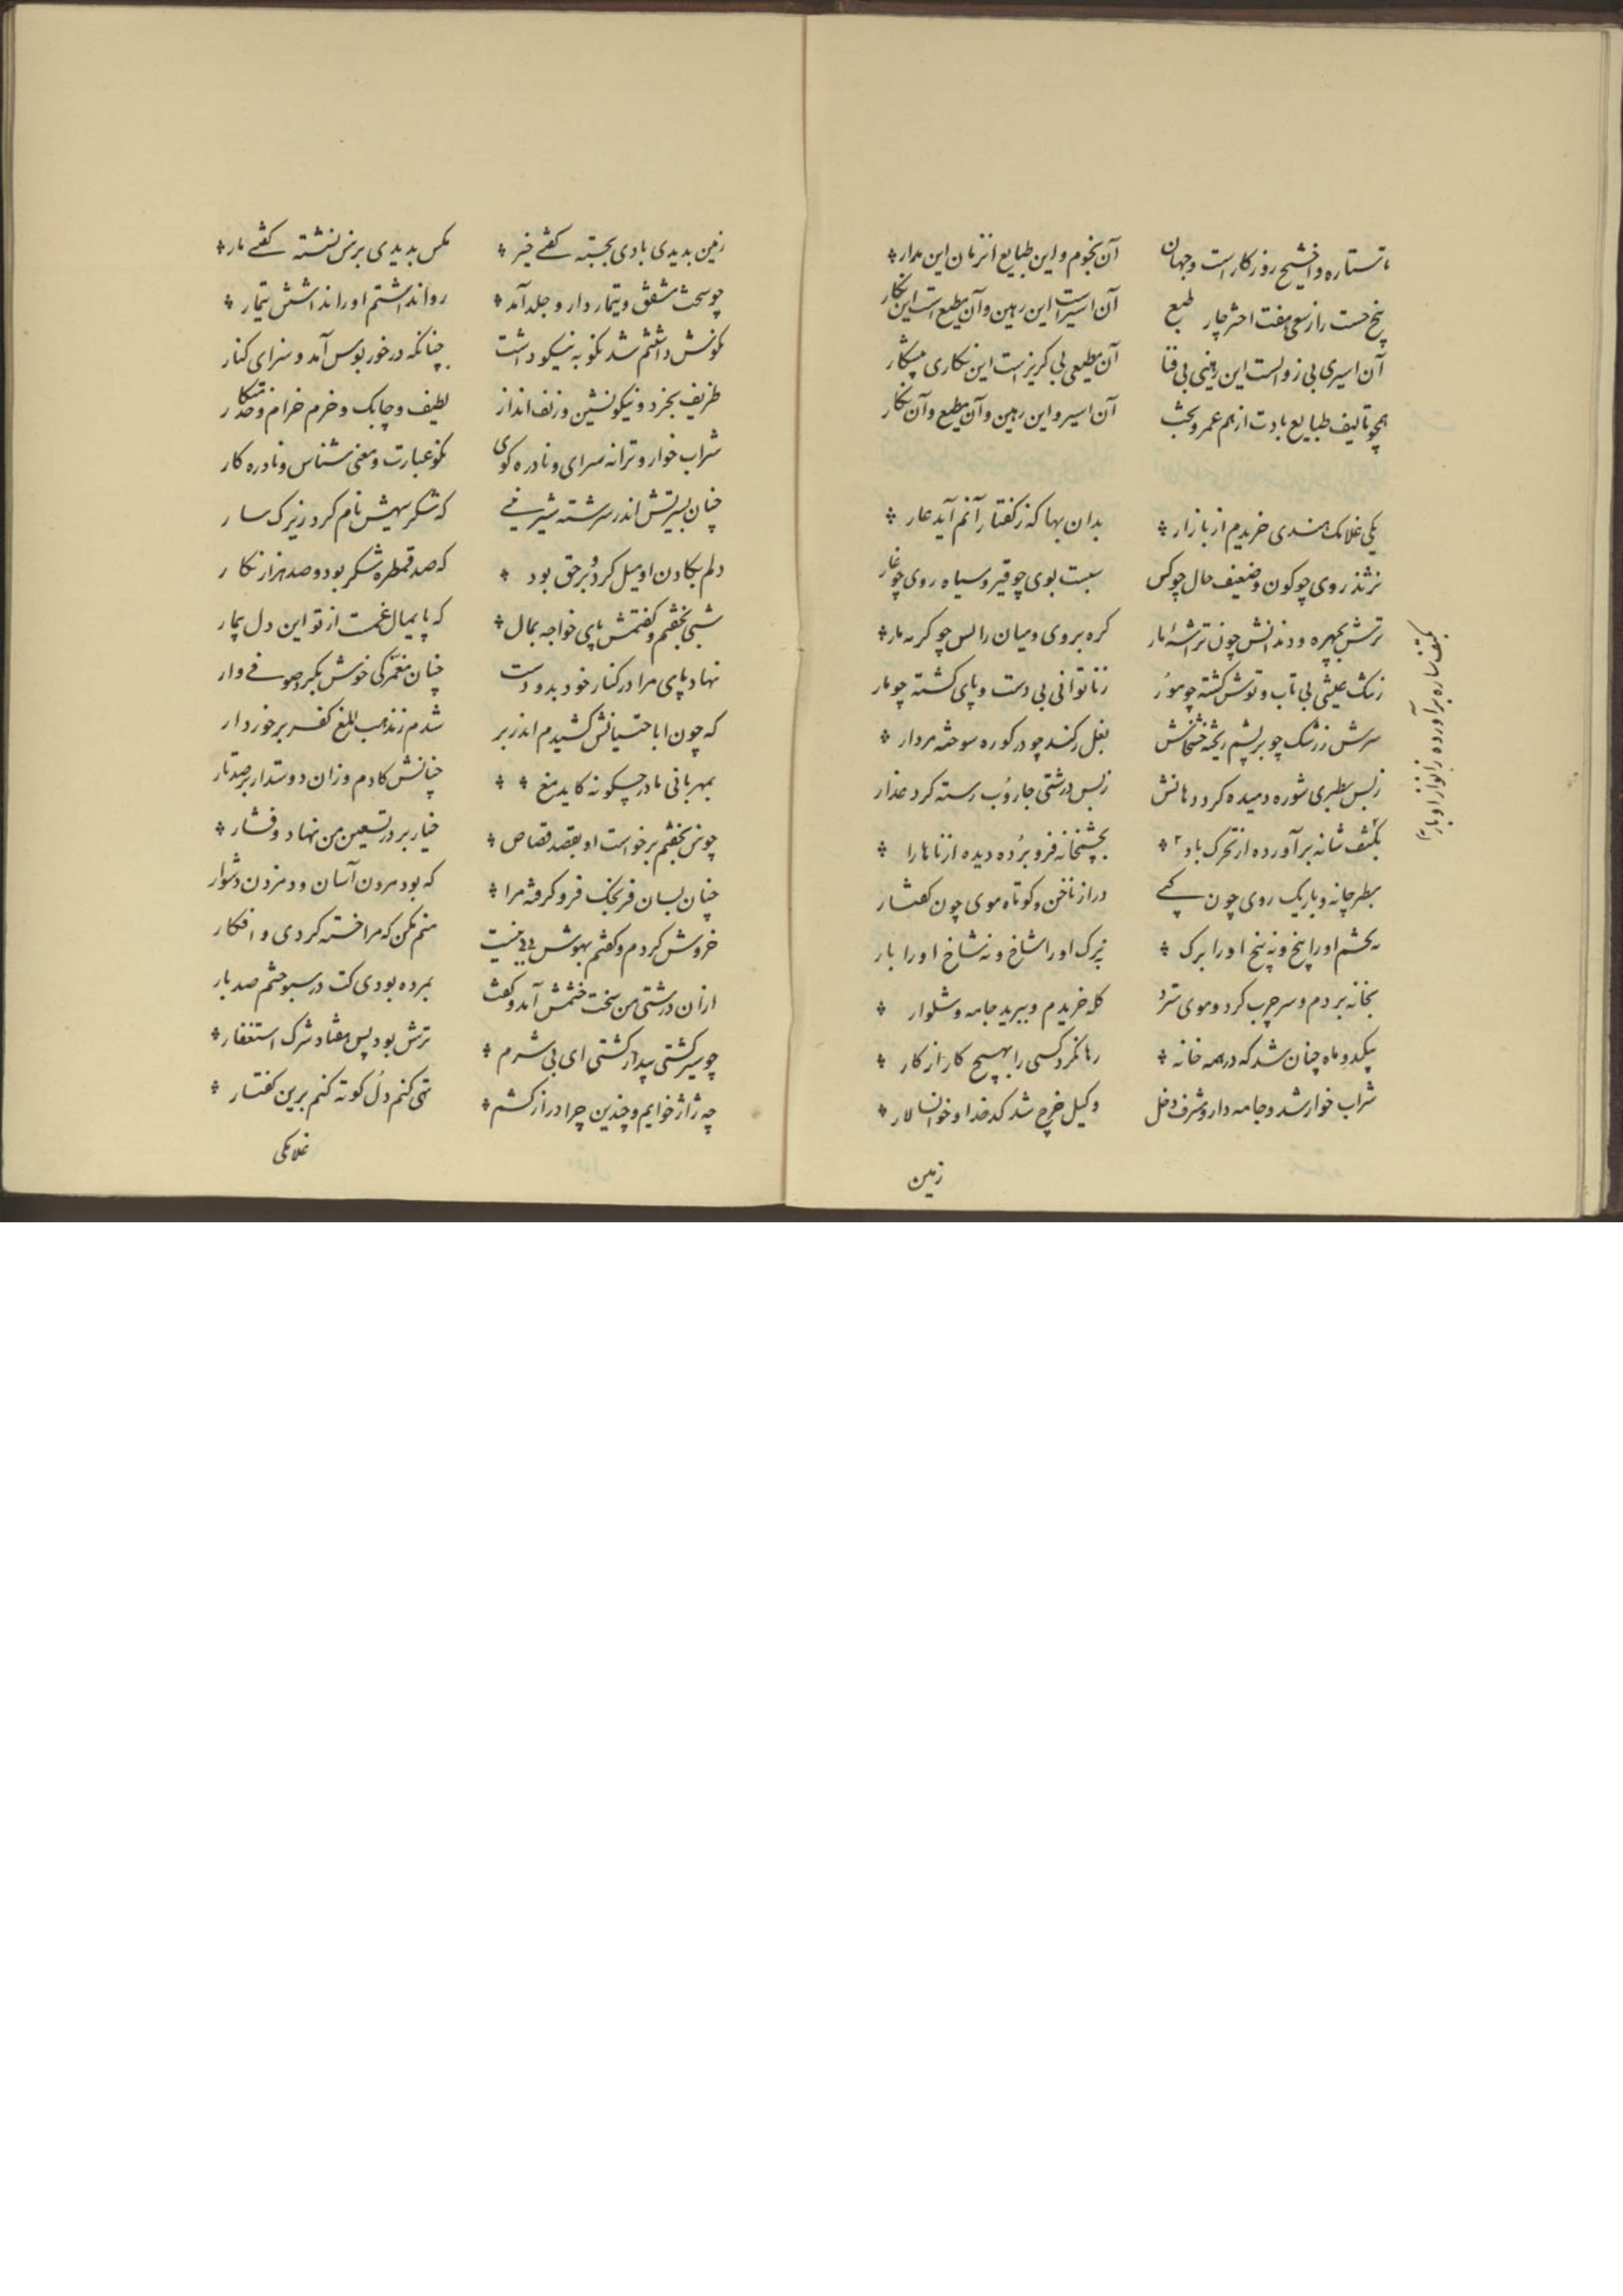 تا ستاره و اخشیج روزگار است و جهان آن نجوم و این طبایع از زمان این مدار
پنج حست را ز سعی هفت اختر چار طبع آن اسیر است این رهین و آن مطیع است این نکار
آن اسیری بی زوالست این رهینی بی فنا آن مطیعی بی کریز است این نکاری پیشکار
همچو تالیف طبایع بادت از هم عمر و بخت آن اسیر و این رهین و آن مطیع و آن نکار
یکی غلامک هندی خریدم از بازار بدان بها که ز کفتار آنم آید عار
نژند روی چو کون و ضعیف حال چو کس ببست بوی چو قیر و سیاه روی چو غار
ترش بچهره و دندانش چون تراشهٔ مار کره بروی و میان را لس چو کربه مار
ز ننک عیشی بی تاب و توش کشته چو مور ز ناتوانی بی دست و پای کشته چو مار
سرش ز زشک چو بر پشم ریخته خشخاش بغل ز کند چو در کوره سوخته مردار
ز بس سطبری شوره دمیده کرد دهانش ز بس درشتی جاروب رسته کرد عذار
بکتف شانه برآورده از تحرک باد بچشمخانه فرو برده دیده از ناهار
سطبر چانه و باریک روی چون کپی دراز ناخن و کوتاه موی چون کفتار
نه چشم او را بیخ و نه بیخ او را برک نه برک او را شاخ و نه شاخ او را بار
بخانه بردم و سر چرب کرد و موی سترد کله خریدم و ببرید جامه و شلوار
بیکدو ماه چنان شد که در همه خانه رها نکرد کسی را بهیچ کار از کار
شراب خوار شد و جامه دار و مشرف دخل وکیل خرج شد کدخدا و خوانسالار
زمین
زمین بدیدی بادی بجسته کفتی خیز مکس بدیدی بر من نشسته کفتی مار
چو سخت مشفق و تیمار دار و جلد آمد روا نداشتم او را نداشتن تیمار
نکونش داشتم شد نکو به نیکو داشت چنانکه در خور بوس آمد و سزای کنار
ظریف بخرد و نیکو نشین و زلف انداز لطیف و چابک و خرم خرام و خدمتکار
شراب خوار و ترانه سرای و نادره کوی نکو عبارت و معنی شناس و نادره کار
چنان بسیرتش اندر سرشته شیرینی که شکر سیهش نام کرد زیرک سار
دلم بکادن او میل کرد و بر حق بود که صد قمطره شکر بود و صد هزار نکار
شبی بخفتم و کفتمش پای خواجه بمال که پایمال غمت از تو این دل بیمار
نهاد پای مرا در کنار خود بدو دست چنان مغمزکی خوش بکرد صوفی وار
که چون اباحتیانش کشیدم اندر بر شدم ز مذهب ابلغ کفر برخوردار
بمهربانی مادر چکونه کاید مغ چنانش کادم و زان دوستدارتر صد بار
چو من بخفتم برخواست او بقصد قصاص خیار برد در تسعین من نهاد و فشار
چنان بسان فرنجک فرو کرفته مرا که بود مردن آسان و دم زدن دشوار
خروش کردم و کفتم بهوش منیست منم مکن که مرا خسته کردی و افکار
از آن درشتی من سخت خشمش آمد و کفت بمرده بودی کت در سبوختم صد بار
چو سیر کشتی بیدار کشتی ای بی شرم ترش بود پس هفتاد شرک استغفار
چه ژاژ خوایم و چندین چرا دراز کشم تهی کنم دل کوته کنم برین کفتار
غلامکی